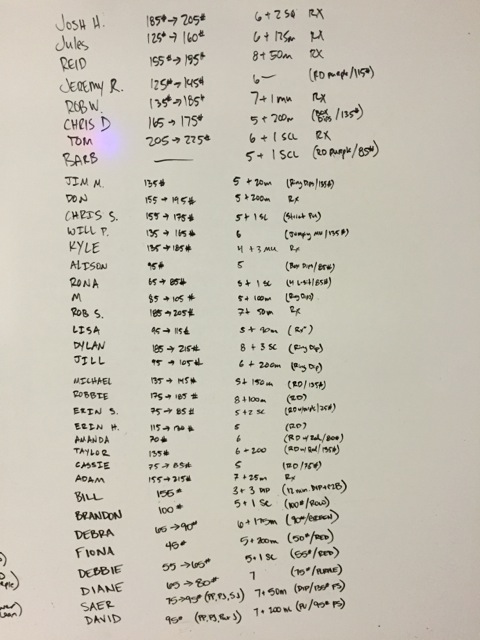 JOSH H. 185# → 205# 6 + 2 SQ RX
Jules 125# → 160# 6 + 175m RX
REID 155# → 185# 8 + 50m RX
JEREMY R. 125# → 145# 6 — (RD Purple/115#)
ROB W. 135# → 185# 7 + 1 mu RX
CHRIS D 165 → 175# 5 + 200m (Box Dips/135#)
TOM 205 → 225# 6 + 1 SCL RX
BARB — 5 + 1 SCL (RD Purple/85#)
JIM M. 135# 5 + 20m (Ring Dips/135#)
DON 155 → 195# 5 + 200m Rx
CHRIS S. 155 → 175# 5 + 1 SC (Strict Pu)
WILL P. 135 → 165# 6 (Jumping MU/135#)
KYLE 135 → 185# 4 + 3 MU Rx
ALISON 95# 5 (Box Dips/85#)
RONA 65 → 85# 5 + 1 SC
M 85 → 105# 5 + 100m (Ring Dips)
ROB S. 185 → 205# 7 + 50m Rx
LISA 95 → 115# 5 + 90m (Rx")
DYLAN 185 → 215# 8 + 3 SC (Ring Dip)
JILL 95 → 105# 6 + 200m (Ring Dip)
MICHAEL 135 → 145# 5 + 150m (RD/135#)
ROBBIE 175 → 185# 8 + 100m (RD)
ERIN S. 75 → 85# 5 + 2 SC
ERIN H. 115 → 130# 5 (RD)
AMANDA 70# 6 (RD w/Red/80#)
TAYLOR 135# 6 + 200 (RD w/Red/135#)
CASSIE 75 → 85# 5 (RD/75#)
ADAM 155 → 215# 7 + 25m Rx
BILL 155# 3 + 3 DIP (12 min. DIP+C2B)
BRANDON 100# 5 + 1 SC (100#/ROLO)
DEBRA 65 → 90# 6 + 175m (90#/GREEN)
FIONA 45# 5 + 200m (50#/RED)
DEBBIE 55 → 65# 5 + 1 SC (55#/RED)
DIANE 65 → 80# 7 (75#/PURPLE)
SAER 75 → 95# (PP, PJ, SJ) 7 + 50m (DIP/135# FS)
DAVID 95# 7 + 200m (PU/95# FS)